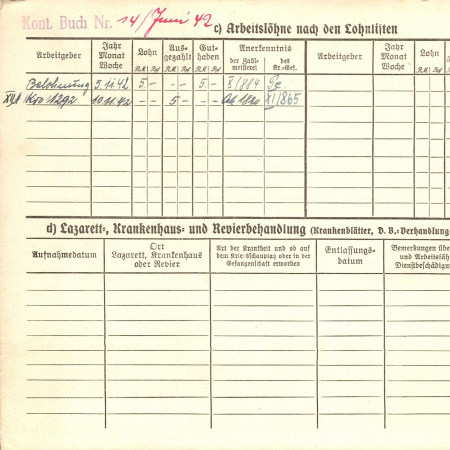 Kont. Buch Nr. 14/Juni 42
c) Arbeitslöhne nach den Lohnlisten
Arbeitgeber Jahr Monat Woche Lohn R.M. Pf. Ausgezahlt R.M. Pf. Guthaben R.M. Pf. Anerkenntnis der Zahlmeisterei des Kr.-Gef. Arbeitgeber Jahr Monat Woche Lohn R.M. Pf.
Belohnung 5.11.42 5.- 5.- X/884
Kdo 1292 10.11.42 - - 5 - - - XI/865
d) Lazarett-, Krankenhaus- und Revierbehandlung (Krankenblätter, D. B.-Verhandlung
Aufnahmedatum
Ort
Lazarett, Krankenhaus
oder Revier
Art der Krankheit und ob auf
dem Kriegsschauplatz oder in der
Gefangenschaft erworben
Entlassungs-
datum
Bemerkungen übe
und Arbeitsfäh
Dienstbeschädigu